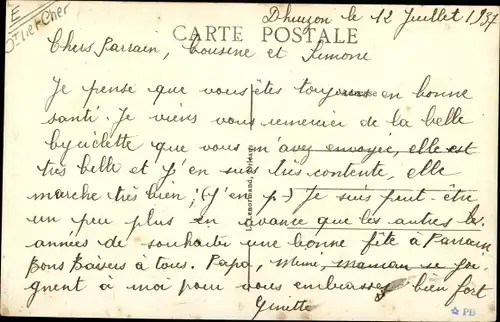 E
Loir et Cher
Dhuizon le 12 Juillet 1937
CARTE POSTALE
Chers Parrain, Cousine et Simone
Je pense que vous êtes toujours en bonne
santé. Je viens vous remercier de la belle
byciclette que vous m'avez envoyée, elle est
très belle et j'en suis très contente, elle
marche très bien, (j'en p.) Je suis peut-être
un peu plus en avance que les autres
années de souhaiter une bonne fête à Parrain.
Bons Baisers à tous. Papa, Mémé, maman se joi-
gnent à moi pour vous embrasser bien fort
Ginette
Lenormand, Orléans
PB